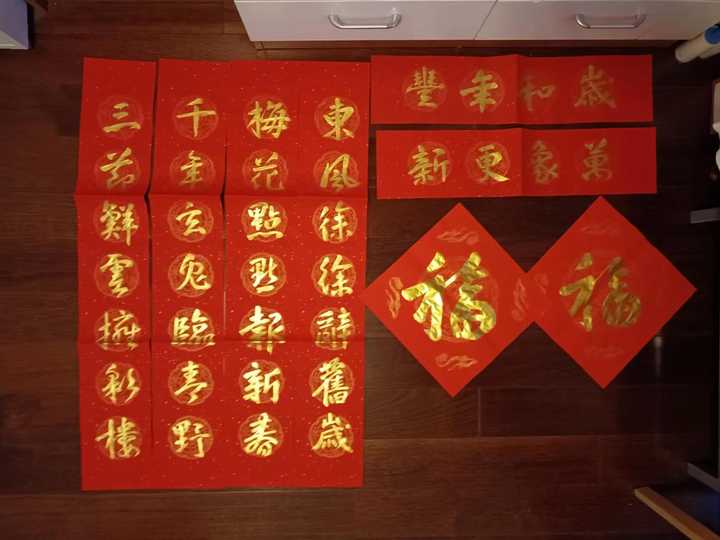 東風徐徐辭舊歲
梅花點點報新春
千年玄兔臨春野
三節鮮雲擁彩樓
歲和年豐
萬象更新
福
福